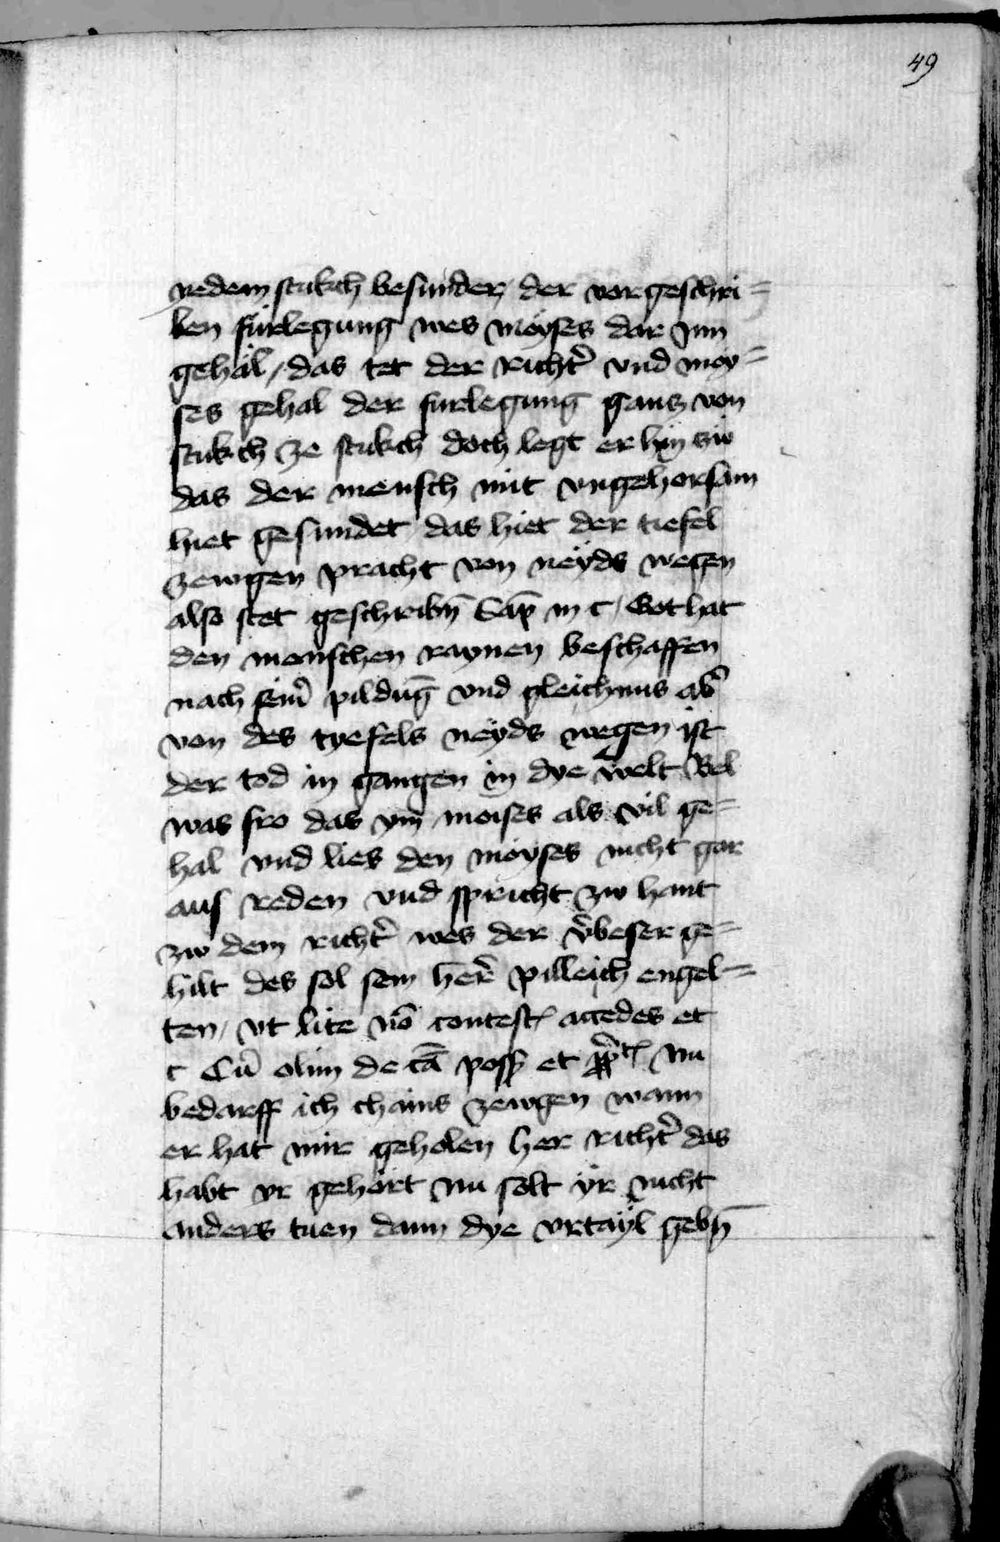 49
yedem stukch besunder der vorgeschri=
ben furlegung wes moyses dar jnn
gehal / das tet der richt̉ vnd moy=
ses gehal der furlegung gancz von
stukch ze stukch doch legt er hin zw
das der mensch mit vngehorsam
hiet gesundet das hiet der tiefel
zewgen pracht von neyds wegen
also stet geschribn̄ Sap̄ in c / Got hat
den menschen raynen beschaffen
nach seim̉ pildūg vnd gleichnus ab̉
von des tyefels neyds wegen ist
der tod in gangen in dye welt Bel
was fro das ym moises als vil ge=
hal vnd lies den moyses nicht gar
aus reden vnd spricht zw hant
zw dem richt̉ wes der v̉beser ge=
hilt des sol sein her̉ pilleich engel=
ten / vt lite nō contest̄ accedes et
c Cū olim de cā poss̄ et nu
bedarff ich chains zewgen wann
er hat mir geholen her richt̉ das
habt yr gehort nu solt yr nicht
anders tuen dann dye vrtayl gebn̄